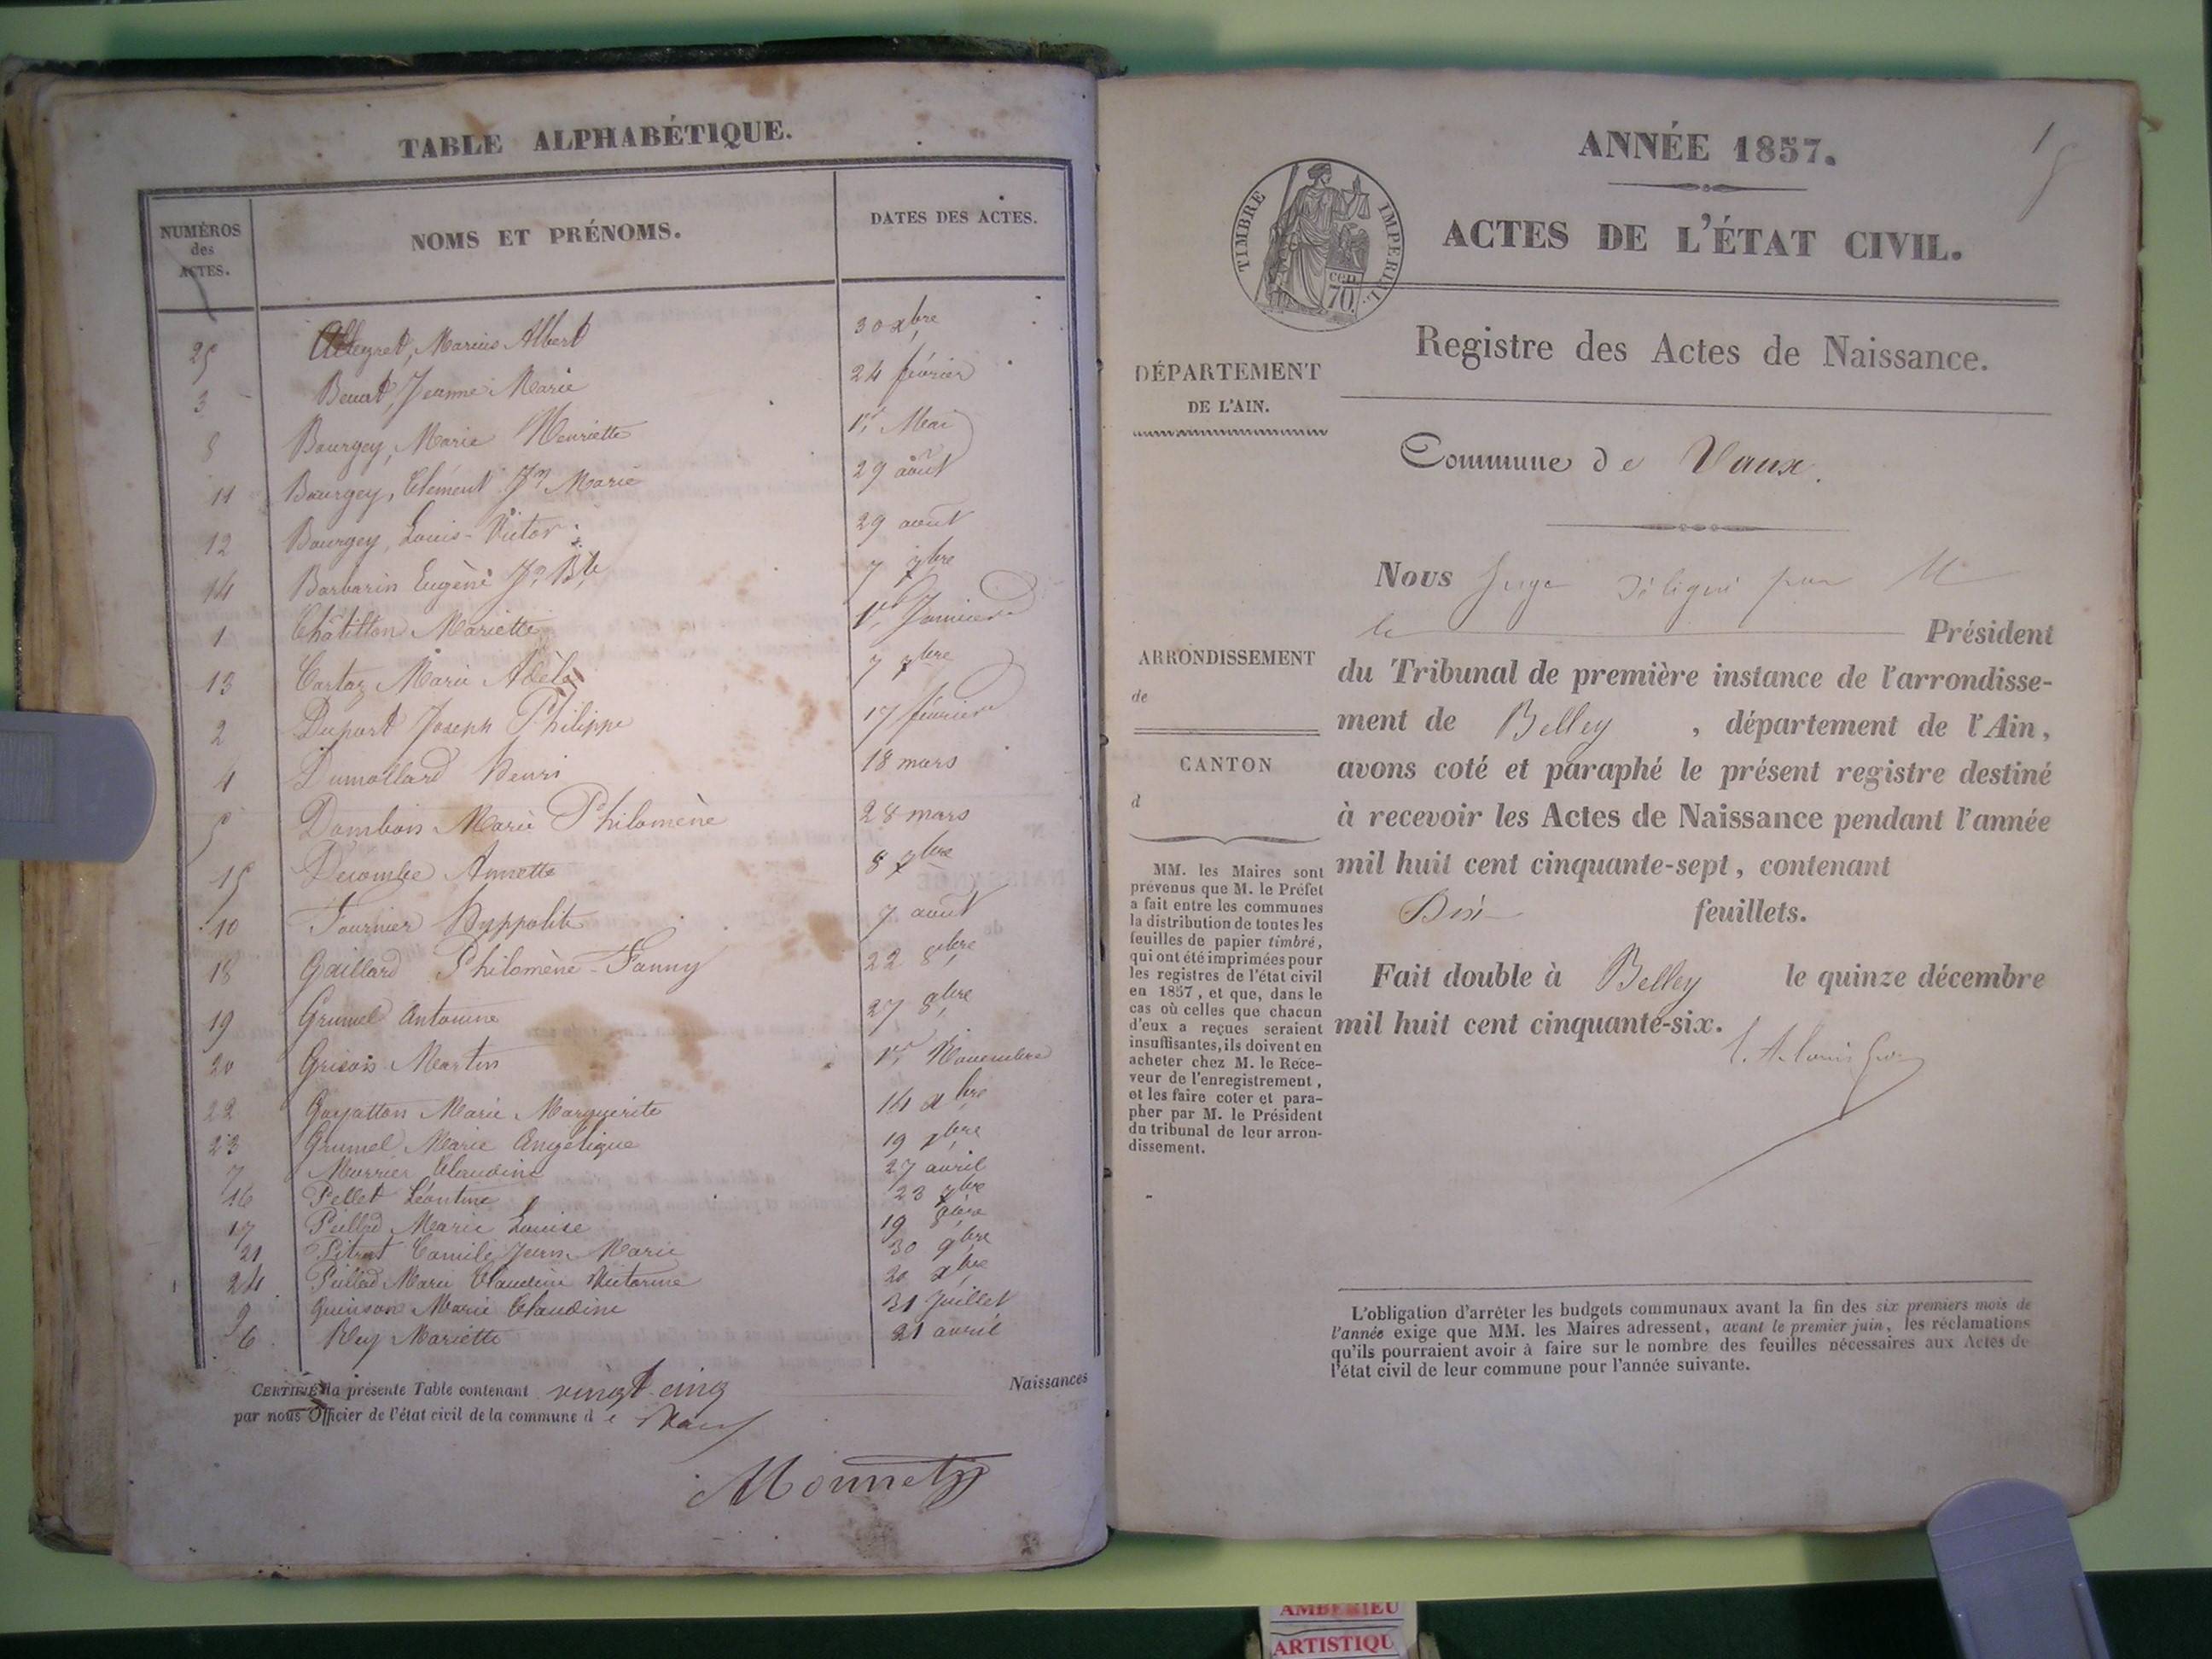 TABLE ALPHABÉTIQUE.
NUMÉROS des ACTES. NOMS ET PRÉNOMS. DATES DES ACTES.
25 Alleyret, Marius Albert 30 xbre
3 Benat, Jeanne Marie 24 février
8 Bourgey, Marie Henriette 1er Mai
11 Bourgey, Clément Jn Marie 29 août
12 Bourgey, Louis-Victor 29 août
14 Barbarin Eugène Jn Bte 7 7bre
1 Châtillon Mariette 1er Janvier
13 Cartaz Marie Adèle 7 7bre
2 Duport Joseph Philippe 17 février
4 Dumollard Henri 18 mars
5 Dombois Marie Philomène 28 mars
15 Decombe Annette 8 7bre
10 Fournier Hyppolite 7 août
18 Gaillard Philomène-Fanny 22 8bre
19 Grumel Antoinne 27 8bre
20 Grisois Martin 1er Novembre
22 Marie Margyerite 14 xbre
23 Grumel Marie Angélique 19 xbre
7 Murrier Claudine 27 avril
16 Pellet Léontine 23 7bre
17 Marie Louise 19 8bre
21 Pitrat Camile Jean Marie 30 9bre
24 Marie Claudine Victorine 20 xbre
9 Quinson Marie Claudine 31 Juillet
6 Rey Mariette 21 avril
CERTIFIÉ la présente Table contenant vingt-cinq Naissances
par nous Officier de l'état civil de la commune d e Vaux
Monnet
1
ANNÉE 1857.
ACTES DE L'ÉTAT CIVIL.
TIMBRE IMPERIAL
70 cen
Registre des Actes de Naissance.
DÉPARTEMENT
DE L'AIN.
Commune de Vaux.
Nous Juge délégué par M
le Président
ARRONDISSEMENT
de
du Tribunal de première instance de l'arrondisse-
ment de Belley , département de l'Ain,
CANTON
d
avons coté et paraphé le présent registre destiné
à recevoir les Actes de Naissance pendant l'année
mil huit cent cinquante-sept, contenant
Dix feuillets.
Fait double à Belley le quinze décembre
mil huit cent cinquante-six.
MM. les Maires sont
prévenus que M. le Préfet
a fait entre les communes
la distribution de toutes les
feuilles de papier timbré,
qui ont été imprimées pour
les registres de l'état civil
en 1857, et que, dans le
cas où celles que chacun
d'eux a reçues seraient
insuffisantes, ils doivent en
acheter chez M. le Rece-
veur de l'enregistrement,
et les faire coter et para-
pher par M. le Président
du tribunal de leur arron-
dissement.
L'obligation d'arrêter les budgets communaux avant la fin des six premiers mois de
l'année exige que MM. les Maires adressent, avant le premier juin, les réclamations
qu'ils pourraient avoir à faire sur le nombre des feuilles nécessaires aux Actes de
l'état civil de leur commune pour l'année suivante.
AMBERIEU
ARTISTIQU